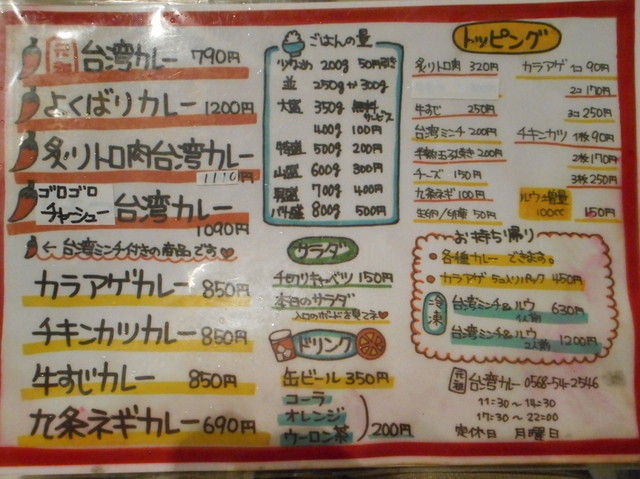 元祖 台湾カレー 790円
よくばりカレー 1200円
炙りトロ肉台湾カレー
1110円
ゴロゴロ
チャーシュー台湾カレー
1090円
←台湾ミンチ付きの商品です
カラアゲカレー 850円
チキンカツカレー 850円
牛すじカレー 850円
九条ネギカレー 690円
ごはんの量
少なめ 200g 50円引き
並 250gか300g
大盛 350g 無料サービス
400g 100円
特盛 500g 200円
山盛 600g 300円
700g 400円
800g 500円
サラダ
千切りキャベツ 150円
本日のサラダ
入口のボードを見てネ
ドリンク
缶ビール 350円
コーラ
オレンジ
ウーロン茶
200円
トッピング
炙りトロ肉 320円
牛すじ 250円
台湾ミンチ 200円
半熟玉子焼き 200円
チーズ 150円
九条ネギ 100円
生卵/ 50円
カラアゲ 1コ 90円
2コ 170円
3コ 250円
チキンカツ 1枚 90円
2枚 170円
3枚 250円
ルウ増量
100cc 150円
お持ち帰り
各種カレー できます。
カラアゲ 5コ入りパック 450円
冷凍
台湾ミンチ&ルウ 630円
1人前
台湾ミンチ&ルウ 1200円
2人前
元祖 台湾カレー 0568-54-2546
11:30~14:30
17:30~22:00
定休日 月曜日